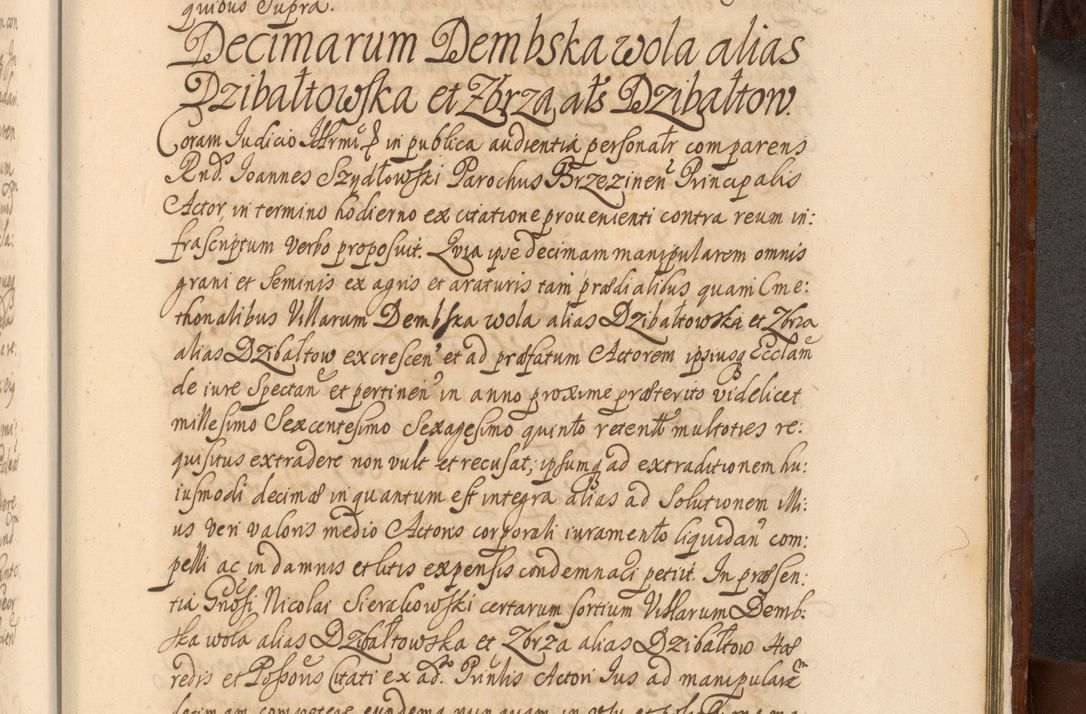 quibus Supra.
Decimarum Dembska wola alias
Dzibałtowska et Zbrza ałs Dzibałtow.
Coram Iudicio in publica audientia personalr comparens
Rnd. Ioannes Szydłowski Parochus Brzezinen Principalis
Actor, in termino hodierno ex citatione prouenienti contra reum in:
frascriptum verbo proposuit. Quia ipse decimam manipularem omnis
grani et seminis ex agris et araturis tam prædialibus quam Cme:
thonalibus Villarum Dembska wola alias Dzibałtowska et Zbrza
alias Dzibałtow excrescen et ad præfatum Actorem ipsiusq Ecclam
de iure Spectan et pertinen in anno proxime præterito videlicet
millesimo Sexcentesimo Sexagesimo quinto retent multoties re:
quisitus extradere non vult et recusat; ipsumq ad extraditionem hu:
iusmodi decimæ in quantum est integra alias ad Solutionem illi:
us veri valoris medio Actoris corporali iuramento liquidan com:
pelli ac in damnis et litis expensis condemnaci petiit. In præsen:
tia Gnosi Nicolai Sierakowski certarum sortium Villarum Demb:
ska wola alias Dzibałtowska et Zbrża alias Dzibałtow Hæ
redis et Possoris Citati ex ad. Prinlis Actori Ius ad manipularem
decimam competere eundemq nunquam in usu et